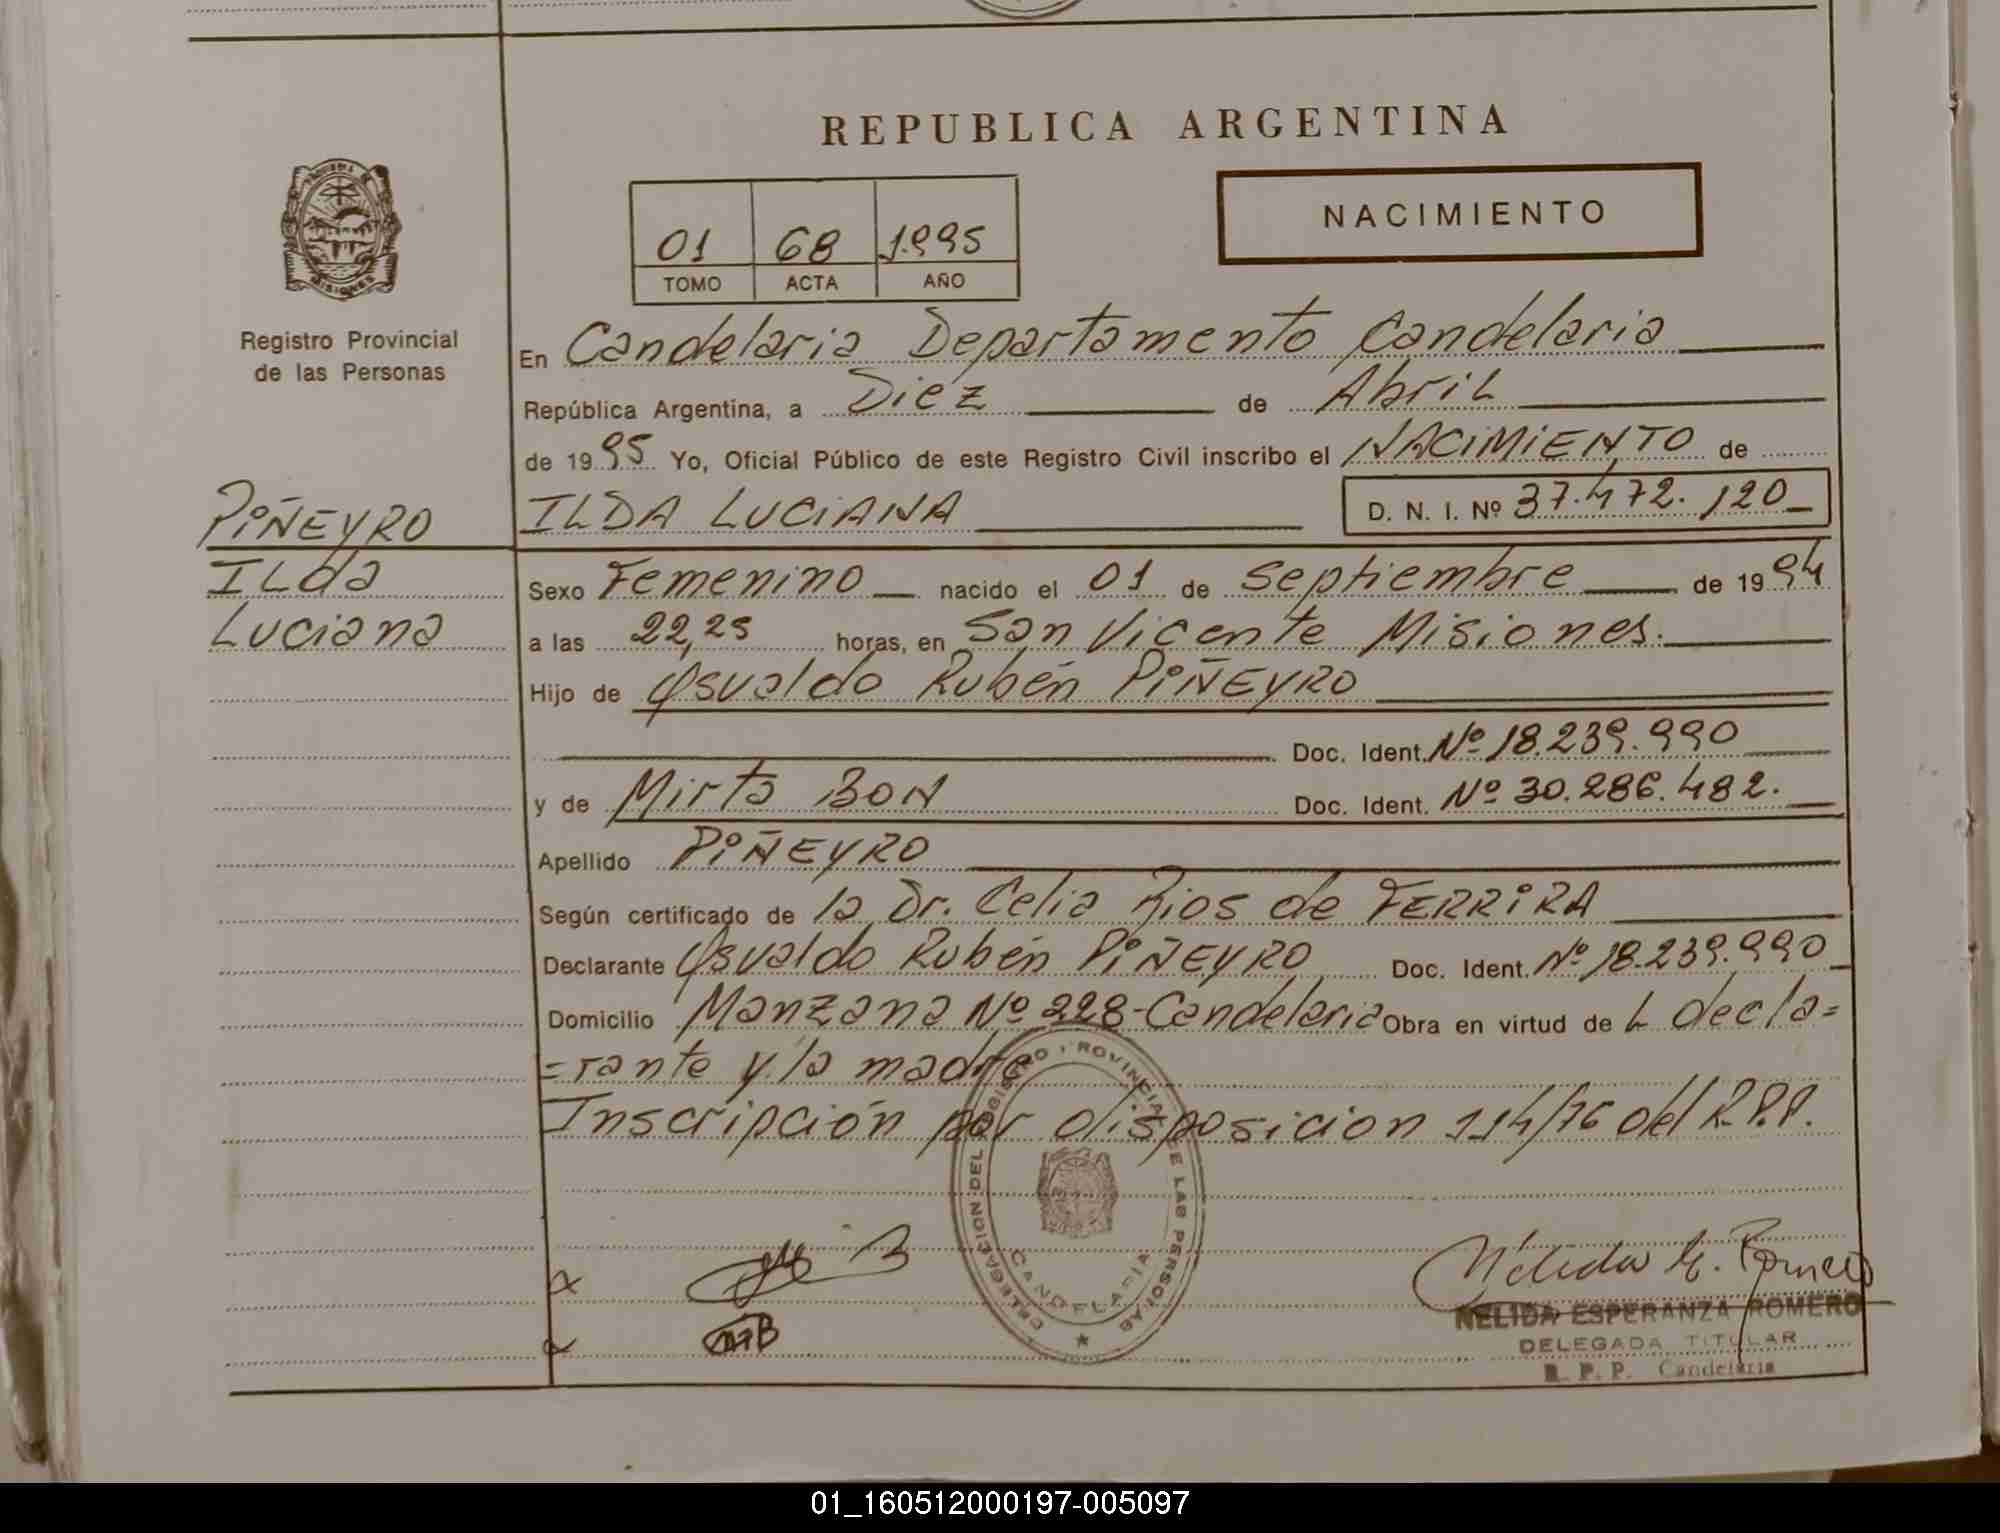 REPUBLICA ARGENTINA
NACIMIENTO
01 68 1.995
TOMO ACTA AÑO
MISIONES
Registro Provincial
de las Personas
En Candelaria Departamento Candelaria
República Argentina, a Diez de Abril
de 1995 Yo, Oficial Público de este Registro Civil inscribo el NACIMIENTO de
PIÑEYRO
ILDA LUCIANA D. N. I. Nº 37.472.120
Ilda
Luciana
Sexo Femenino nacido el 01 de Septiembre de 1994
a las 22,25 horas, en San Vicente Misiones.
Hijo de Osvaldo Rubén PIÑEYRO
Doc. Ident. Nº 18.239.990
y de Mirta BON Doc. Ident. Nº 30.286.482.
Apellido PIÑEYRO
Según certificado de la Dr. Celia Rios de FERRIRA
Declarante Osvaldo Rubén PIÑEYRO Doc. Ident. Nº 18.239.990
Domicilio Manzana Nº 228-Candelaria Obra en virtud de L decla=
=rante y la madre
Inscripción por disposicion 114/76 del R.P.P.
DELEGACION DEL REGISTRO PROVINCIAL DE LAS PERSONAS
CANDELARIA
Nélida E. Romero
NELIDA ESPERANZA ROMERO
DELEGADA TITULAR
R. P. P. Candelaria
01_160512000197-005097